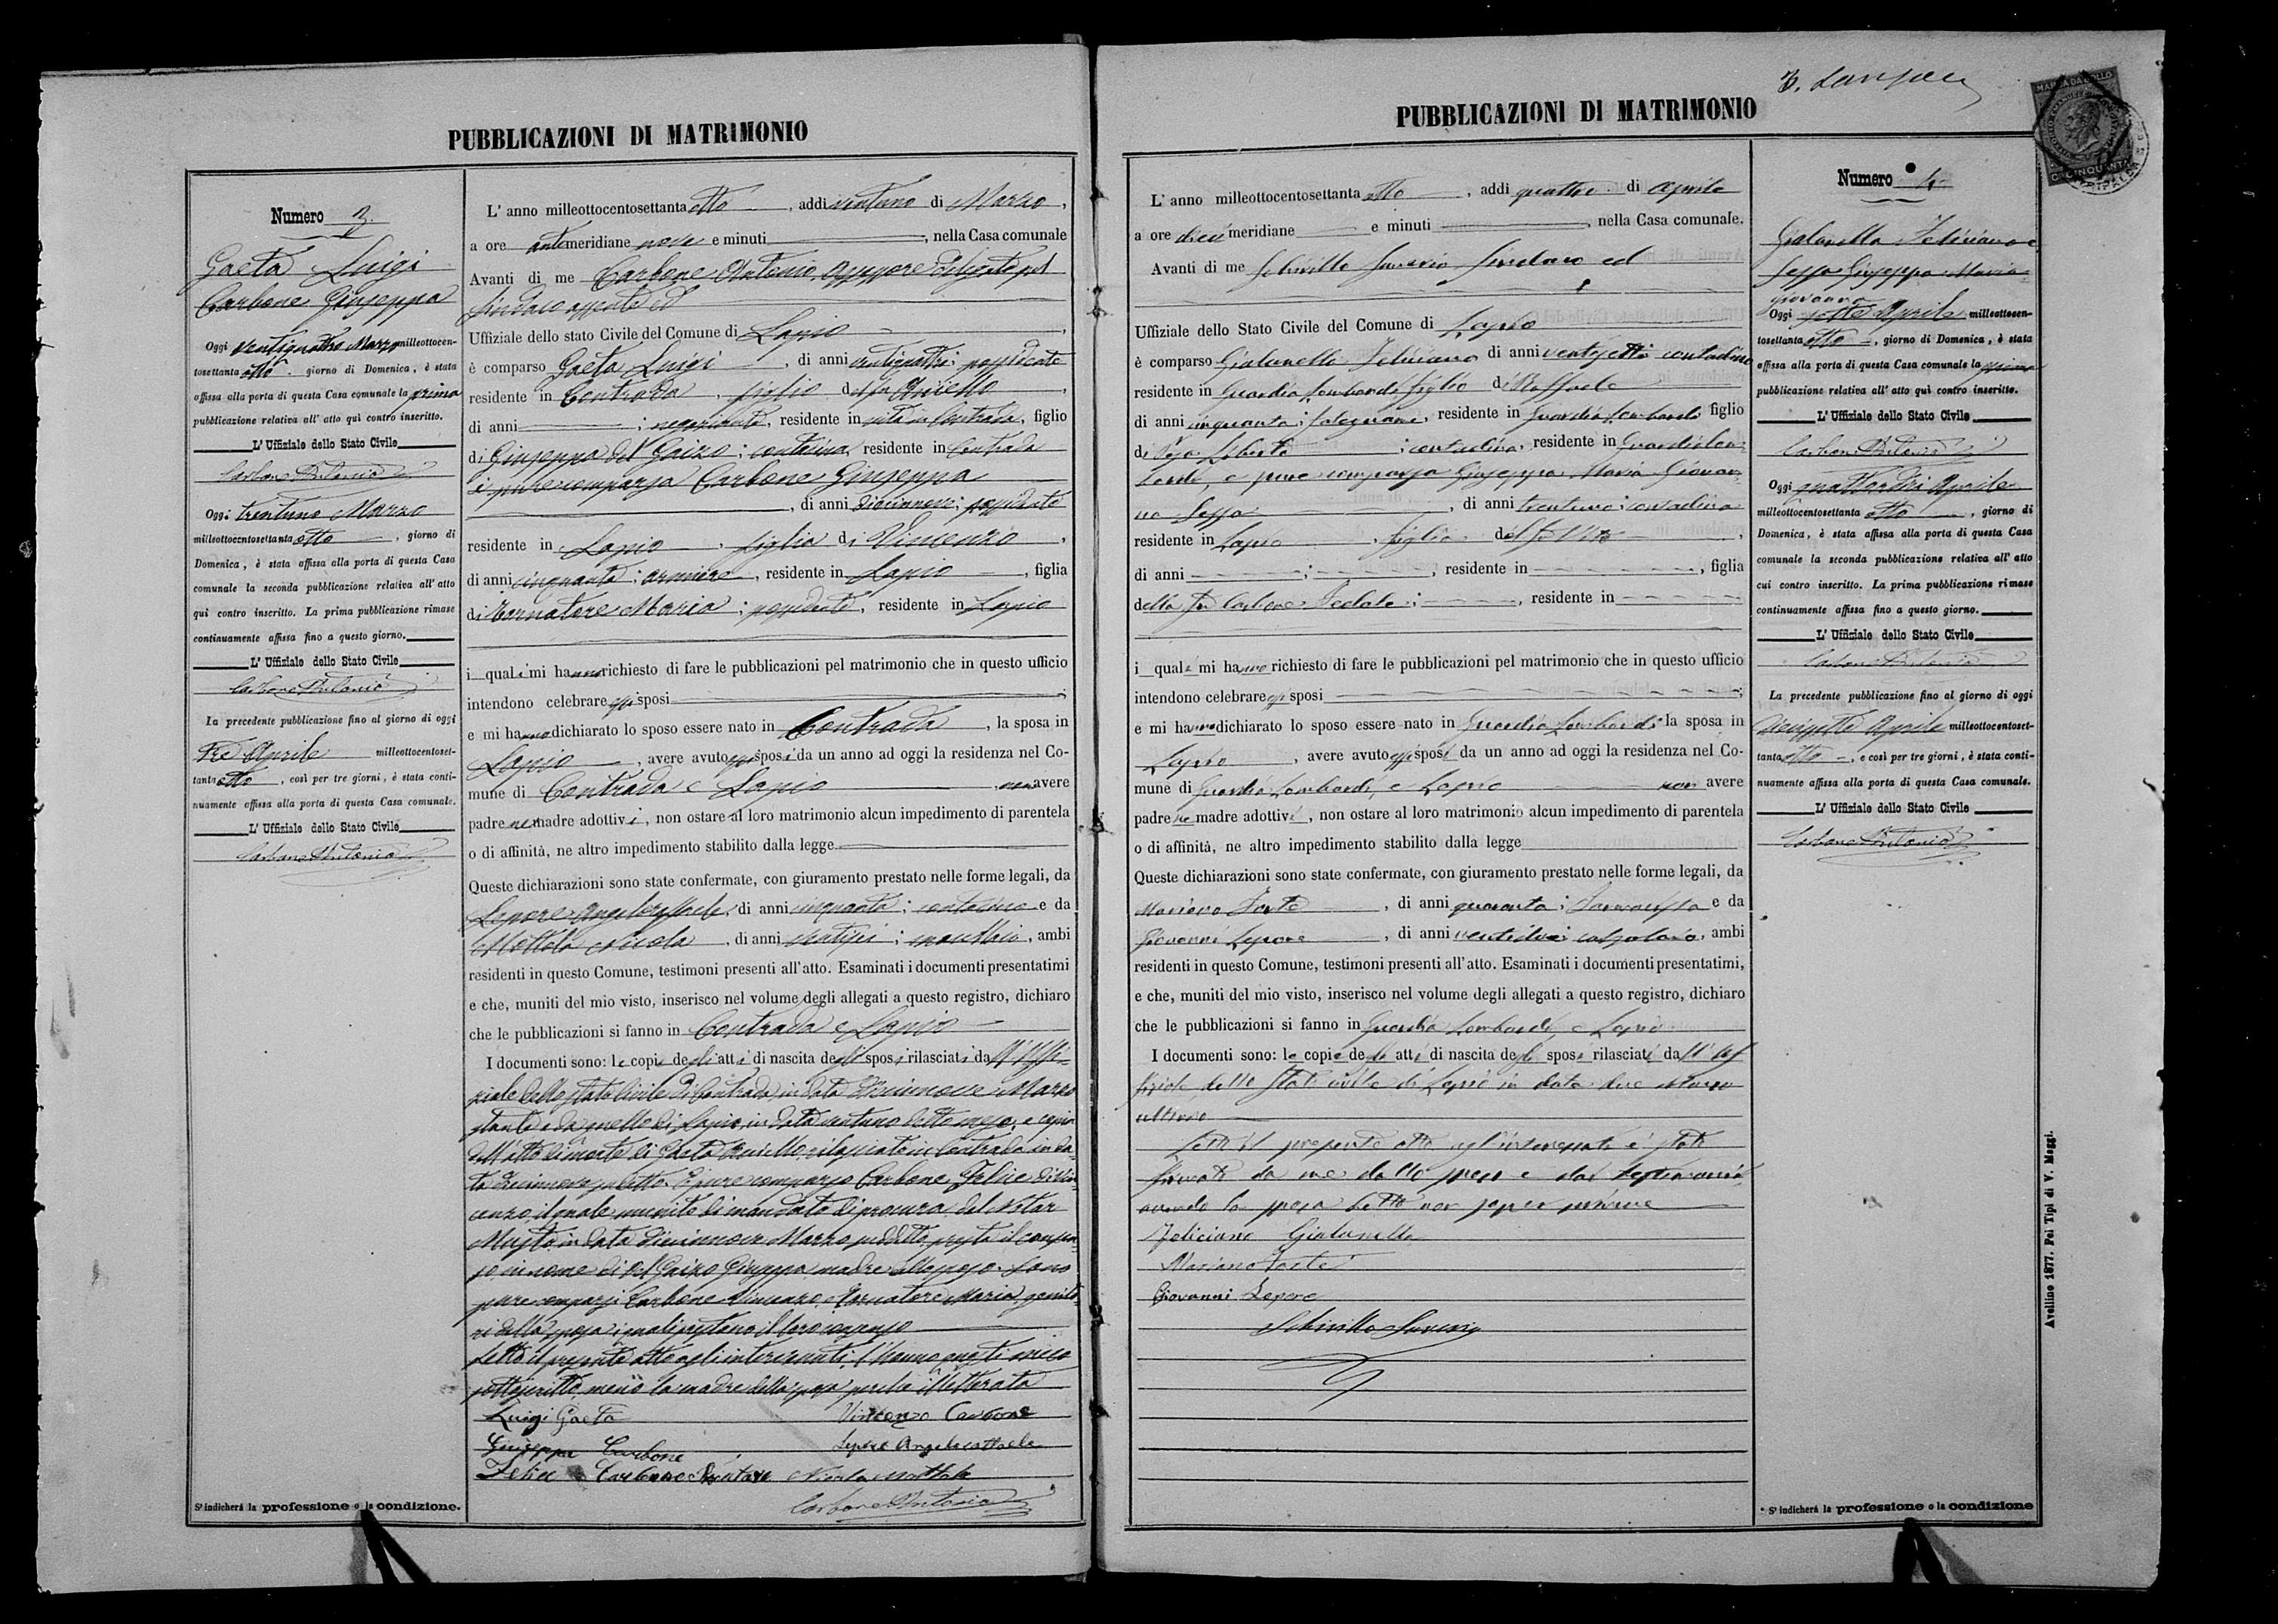 PUBBLICAZIONI DI MATRIMONIO
Numero 3
Gaeta Luigi
Carbone Giuseppa
Oggi ventiquattro Marzo milleottocen-
tosettanta otto giorno di Domenica, è stata
affissa alla porta di questa Casa comunale la prima
pubblicazione relativa all' atto quì contro inscritto.
L' Uffiziale dello Stato Civile
Carbone Antonio
Oggi trentuno Marzo
milleottocentosettanta otto, giorno di
Domenica, è stata affissa alla porta di questa Casa
comunale la seconda pubblicazione relativa all' atto
quì contro inscritto. La prima pubblicazione rimase
continuamente affissa fino a questo giorno.
L' Uffiziale dello Stato Civile
Carbone Antonio
La precedente pubblicazione fino al giorno di oggi
Tre Aprile milleottocentoset-
tanta otto, così per tre giorni, è stata conti-
nuamente affissa alla porta di questa Casa comunale.
L' Uffiziale dello Stato Civile
Carbone Antonio
S' indicherà la professione o la condizione.
L' anno milleottocentosettanta otto, addì ventuno di Marzo,
a ore antimeridiane nove e minuti, nella Casa comunale
Avanti di me Carbone Antonio Assessore delegato pel
Sindaco assente ed
Uffiziale dello stato Civile del Comune di Lapio
è comparso Gaeta Luigi, di anni ventiquattro possidente
residente in Contrada, figlio del fu Aniello,
di anni ; negoziante, residente in vita in Contrada, figlio
di Giuseppa del Gaizo; contadina, residente in Contrada
è pure comparsa Carbone Giuseppa
, di anni diciannove; possidente
residente in Lapio, figlia di Vincenzo,
di anni cinquanta; armiere, residente in Lapio, figlia
di Tornatore Maria; possidente, residente in Lapio
i quali mi hanno richiesto di fare le pubblicazioni pel matrimonio che in questo ufficio
intendono celebrare essi sposi;
e mi hanno dichiarato lo sposo essere nato in Contrada, la sposa in
Lapio, avere avuto essi sposi da un anno ad oggi la residenza nel Co-
mune di Contrada e Lapio, non avere
padre ne madre adottivi, non ostare al loro matrimonio alcun impedimento di parentela
o di affinità, ne altro impedimento stabilito dalla legge
Queste dichiarazioni sono state confermate, con giuramento prestato nelle forme legali, da
Lepore Angeloraffaele, di anni cinquanta; contadino e da
Mottola Nicola, di anni ventisei;, ambi
residenti in questo Comune, testimoni presenti all'atto. Esaminati i documenti presentatimi
e che, muniti del mio visto, inserisco nel volume degli allegati a questo registro, dichiaro
che le pubblicazioni si fanno in Contrada e Lapio
I documenti sono: le copie degli atti di nascita degli sposi rilasciati da ll' Uffi-
ziale dello stato Civile di Contrada in data diciannove Marzo
stante e da quello di Lapio in data ventuno detto mese; e copia
dell'atto di morte di Gaeta Aniello rilasciato in Contrada in da-
ta diciannove suddetto. È pure comparso Carbone Felice di Vin-
cenzo, il quale munito di mandato di procura del Notar
Musto in data diciannove Marzo suddetto presta il consen-
so in nome di del Gaizo Giuseppa madre dello sposo. Sono
pure comparsi Carbone Vincenzo e Tornatore Maria genito-
ri della sposa i quali prestano il loro consenso
Letto il presente atto agli intervenuti, l'hanno questi meco
sottoscritto, meno la madre della sposa perché illetterata
Luigi Gaeta Vincenzo Carbone
Giuseppa Carbone Lepore Angeloraffaele
Felice Carbone Nicola Mottola
Carbone Antonio
PUBBLICAZIONI DI MATRIMONIO
MARCA DA BOLLO
L' anno milleottocentosettanta otto, addì quattro di Aprile
a ore dieci meridiane e minuti, nella Casa comunale.
Avanti di me Schirillo Saverio Sindaco ed
Uffiziale dello Stato Civile del Comune di Lapio
è comparso Gialanella Feliciano di anni ventisette contadino
residente in Guardia Lombardi figlio di Raffaele
di anni cinquanta; falegname, residente in Guardia Lombardi figlio
; contadina, residente in Guardia Lom-
bardi, e pure comparsa Giuseppa Maria Giovan-
na Sessa, di anni trentuno; contadina
residente in Lapio, figlia del fu Vito,
di anni ;, residente in, figlia
della fu Carbone Fedele;, residente in
i quali mi hanno richiesto di fare le pubblicazioni pel matrimonio che in questo ufficio
intendono celebrare essi sposi;
e mi hanno dichiarato lo sposo essere nato in Guardia Lombardi la sposa in
Lapio, avere avuto essi sposi da un anno ad oggi la residenza nel Co-
mune di Guardia Lombardi, e Lapio non avere
padre ne madre adottivi, non ostare al loro matrimonio alcun impedimento di parentela
o di affinità, ne altro impedimento stabilito dalla legge
Queste dichiarazioni sono state confermate, con giuramento prestato nelle forme legali, da
Mariano Forte, di anni quaranta; e da
Giovanni Lepore, di anni ventidue calzolaio, ambi
residenti in questo Comune, testimoni presenti all'atto. Esaminati i documenti presentatimi,
e che, muniti del mio visto, inserisco nel volume degli allegati a questo registro, dichiaro
che le pubblicazioni si fanno in Guardia Lombardi, e Lapio
I documenti sono: le copie degli atti di nascita degli sposi rilasciati da ll' Uf
fiziale dello stato civile di Lapio in data due Marzo
ultimo
Letto il presente atto agl'intervenuti è stato
firmato da me dallo sposo e dai testimoni
avendo la sposa detto non saper firmare
Feliciano Gialanella
Mariano Forte
Giovanni Lepore
Schirillo Saverio
Numero 4
Gialanella Feliciano e
Sessa Giuseppa Maria
Giovanna
Oggi sette Aprile milleottocen-
tosettanta otto, giorno di Domenica, è stata
affissa alla porta di questa Casa comunale la prima
pubblicazione relativa all' atto quì contro inscritto.
L' Uffiziale dello Stato Civile
Carbone Antonio
Oggi quattordici Aprile
milleottocentosettanta otto, giorno di
Domenica, è stata affissa alla porta di questa Casa
comunale la seconda pubblicazione relativa all' atto
cui contro inscritto. La prima pubblicazione rimase
continuamente affissa fino a questo giorno.
L' Uffiziale dello Stato Civile
Carbone Antonio
La precedente pubblicazione fino al giorno di oggi
diciassette Aprile milleottocentoset-
tanta otto, e così per tre giorni, è stata conti-
nuamente affissa alla porta di questa Casa comunale.
L' Uffiziale dello Stato Civile
Carbone Antonio
* S' indicherà la professione o la condizione
Avellino 1877. Pei Tipi di V. Maggi.